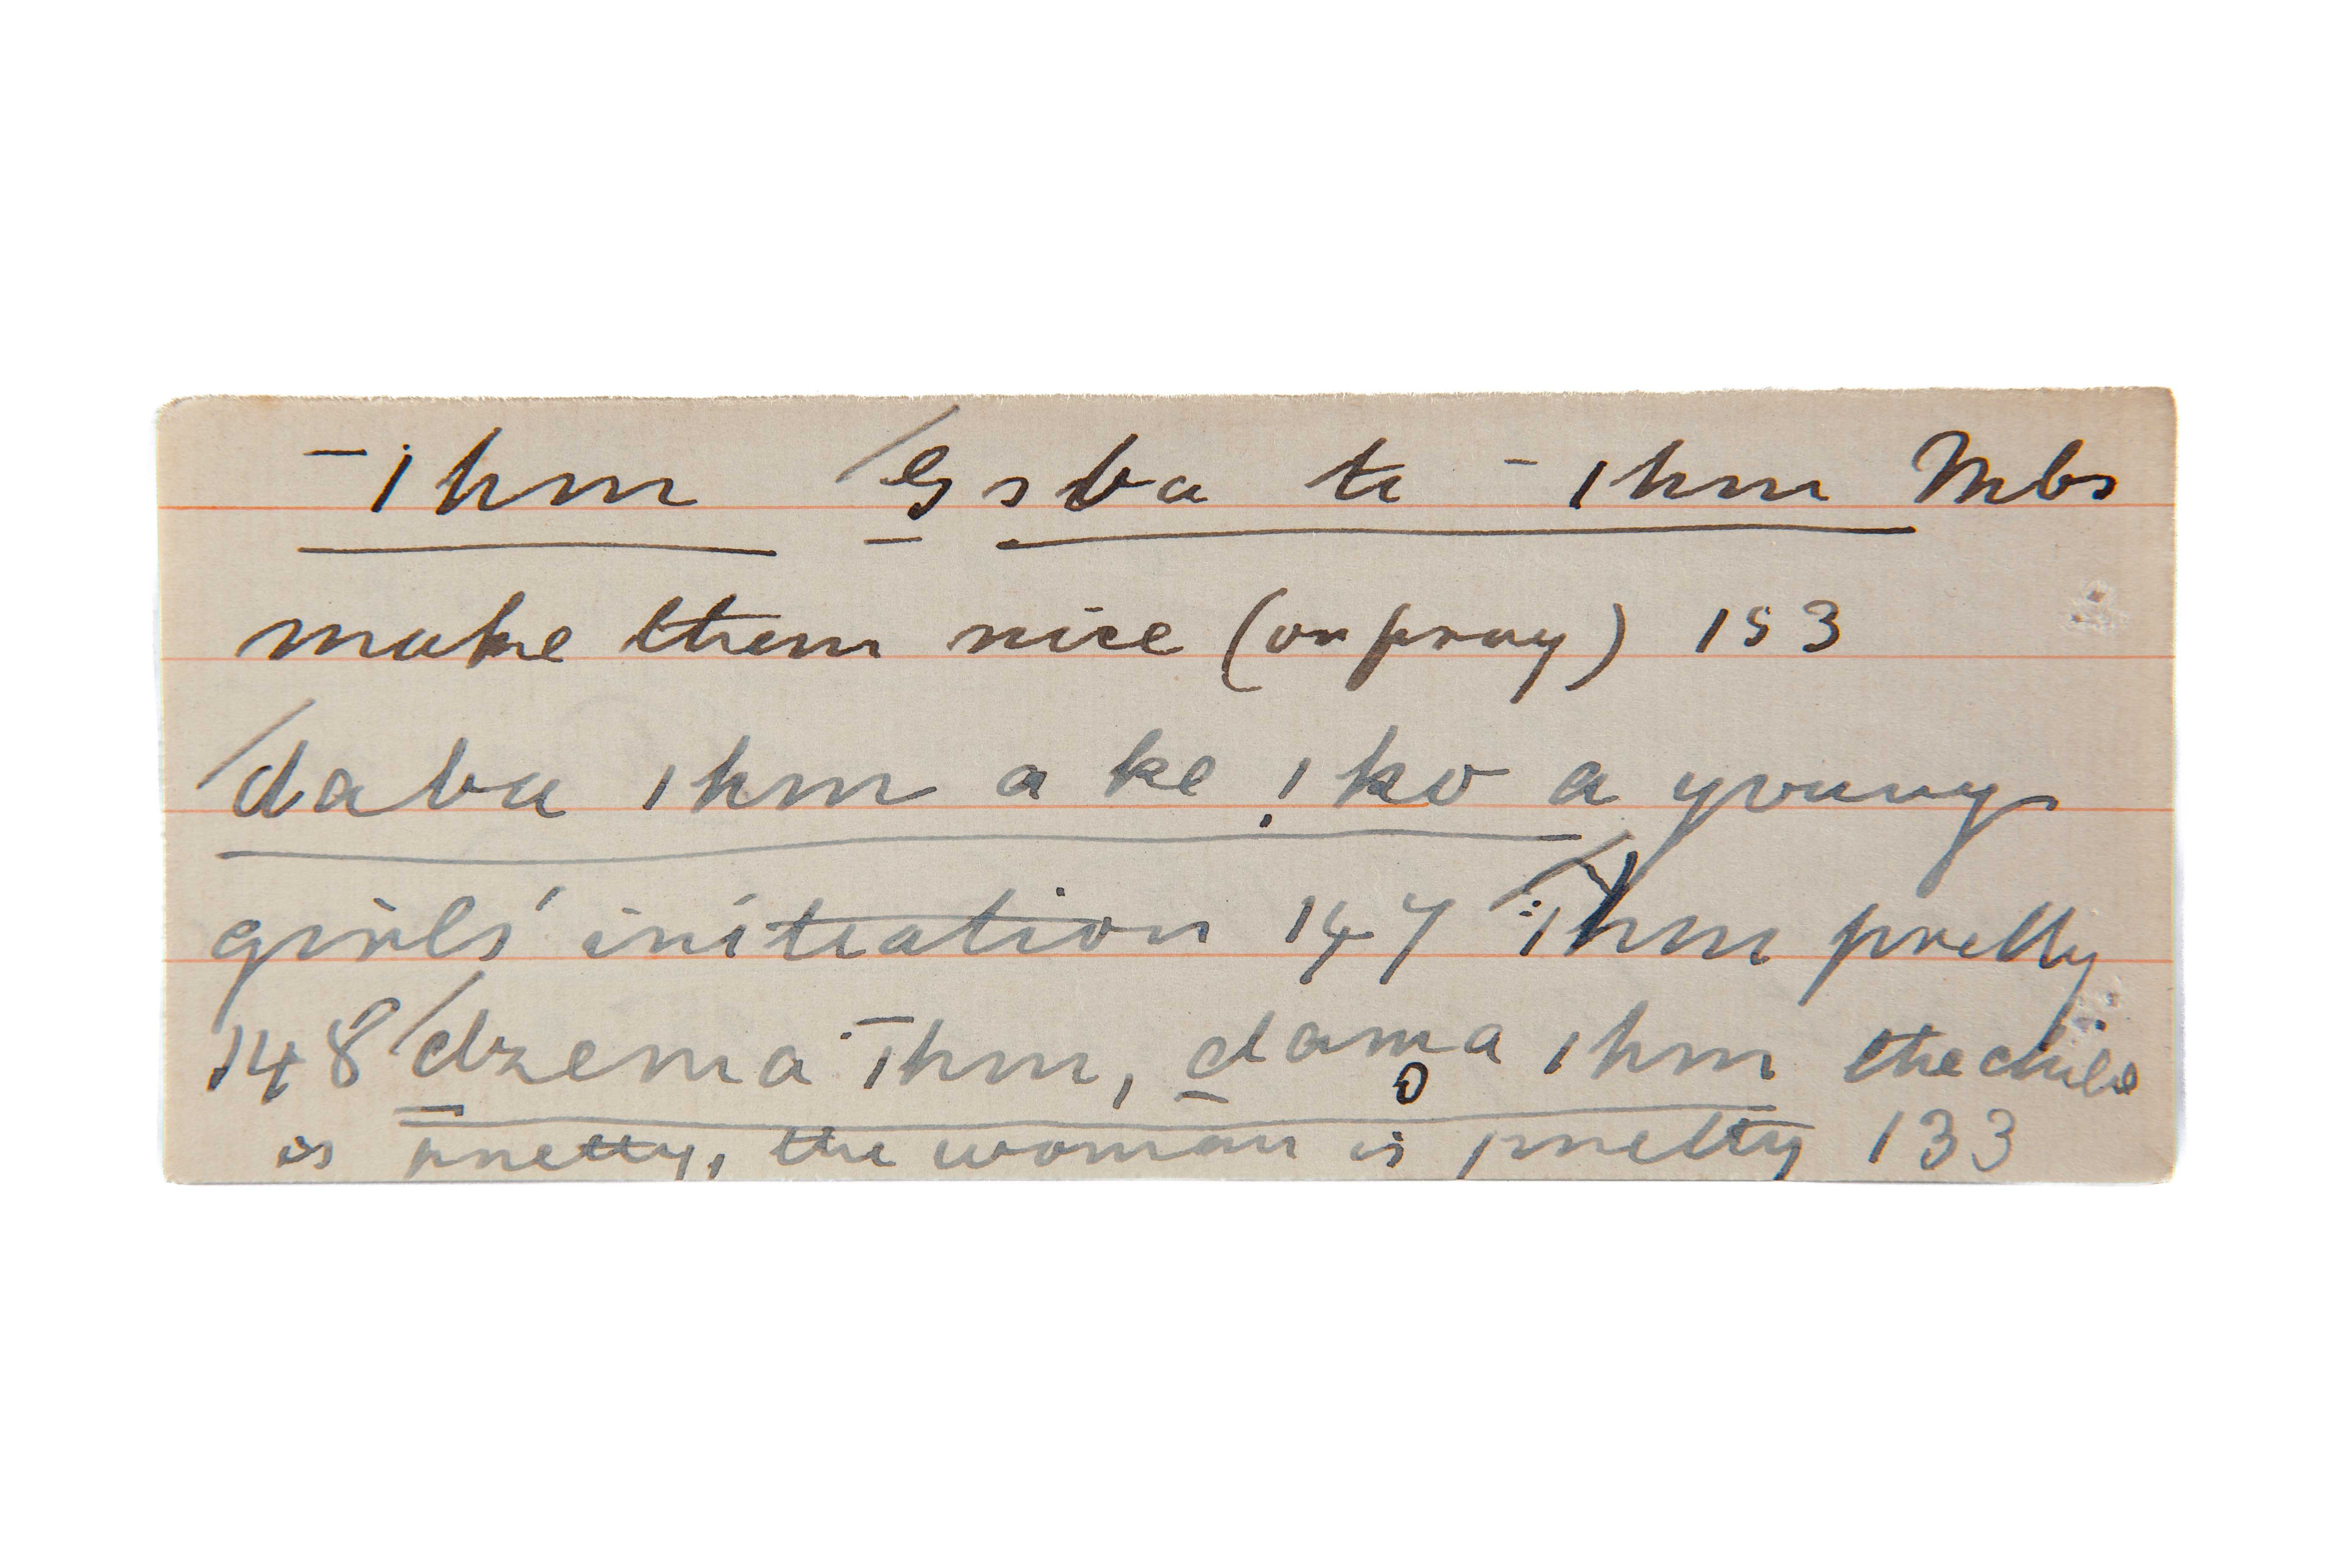 ‾ıhm /G ɜba te ‾ıhm Mbɜ
make them nice (or pray) 153
/daba ıhm a ke !ko a young
girls' initiation 147 /ıhm pretty
148 /dzema ‾ıhm, dama ıhm the child
is pretty, the woman is pretty 133